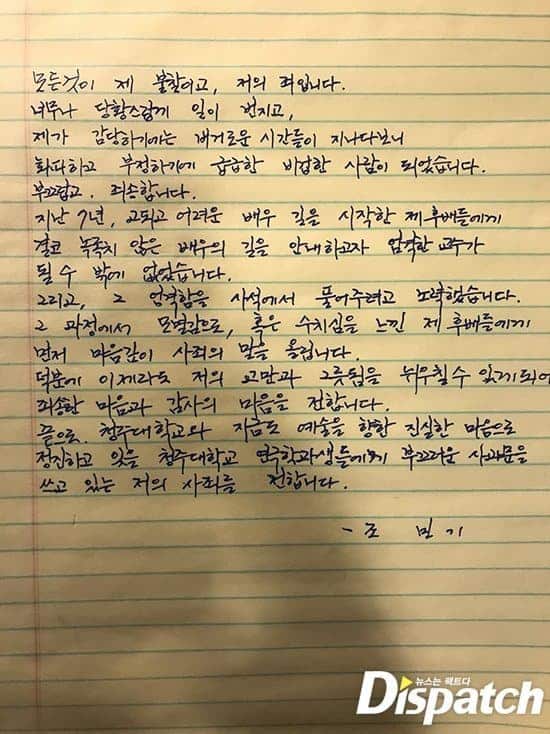 모든것이 제 불찰이고, 저의 죄입니다.
너무나 당황스럽게 일이 번지고,
제가 감당하기에는 버거로운 시간들이 지나다보니
회피하고 부정하기에 급급한 비겁한 사람이 되었습니다.
부끄럽고. 죄송합니다.
지난 7년, 고되고 어려운 배우 길을 시작한 제 후배들에게
결코 녹록치 않은 배우의 길을 안내하고자 엄격한 교수가
될 수 밖에 없었습니다.
그리고, 그 엄격함을 사석에서 풀어주려고 노력했습니다.
그 과정에서 모멸감으로, 혹은 수치심을 느낀 제 후배들에게
먼저 마음깊이 사죄의 말을 올립니다.
덕분에 이제라도 저의 교만과 그릇됨을 뉘우칠 수 있게되어
죄송한 마음과 감사의 마음을 전합니다.
끝으로. 청주대학교와 지금도 예술을 향한 진실한 마음으로
정진하고 있을 청주대학교 연극학과생들에게 부끄러운 사과문을
쓰고 있는 저의 사죄를 전합니다.
- 조 민 기
뉴스는 팩트다
Dispatch